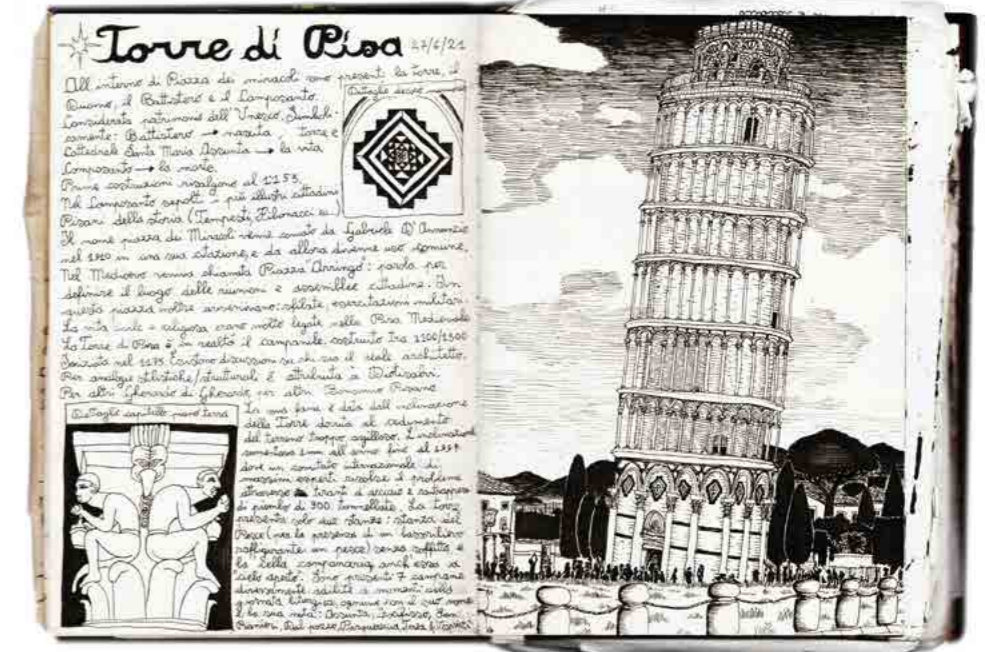 Torre di Pisa 27/6/21
All interno di Piazza dei miracoli sono presenti la torre, il
Duomo, il Battistero e il Camposanto.
Considerata patrimonio dell'Unesco. Simboli-
camente: Battistero → nascita, torre e
Cattedrale Santa Maria Assunta → la vita
Camposanto → la morte.
Prime costruzioni risalgono al 1153.
Nel Camposanto sepolti i più illustri cittadini
Pisani della storia (Tempesti, Fibonacci ...)
Il nome piazza dei Miracoli venne coniato da Gabriele D'Annunzio
nel 1910 in una sua citazione, e da allora divenne uso comune.
Nel Medioevo veniva chiamata Piazza "Arringo": parola per
definire il luogo delle riunioni e assemblee cittadine. In
questa piazza inoltre avvenivano: sfilate, esercitazioni militari.
La vita civile e religiosa erano molto legate nella Pisa Medievale
La Torre di Pisa è in realtà il campanile, costruito tra 1100/1300
Iniziata nel 1173. Esistono discussioni su chi sia il reale architetto.
Per analogie stilistiche/strutturali è attribuita a Diotisalvi.
Per altri Gherardo di Gherardo, per altri Bonanno Pisano
Dettaglio duomo
Dettaglio capitello piano terra
La sua fama è data dall'inclinazione
della Torre dovuta al cedimento
del terreno troppo argilloso. L'inclinazione
aumentava 1mm all'anno fino al
dove un comitato internazionale di
massimi esperti risolse il problema
attraverso tiranti di acciaio e contrappesi
di piombo di 900 tonnellate. La torre
presenta solo due stanze: stanza del
Pesce (per la presenza di un bassorilievo
raffigurante un pesce) senza soffitto e
la cella campanaria anch'essa a
cielo aperto. Sono presenti 7 campane
diversamente adibite a momenti della
giornata liturgica, ognuna con il suo nome
e la sua nota: Assunta, Crocifisso, San
Ranieri, Dal pozzo, Pasquereccia, Terza &